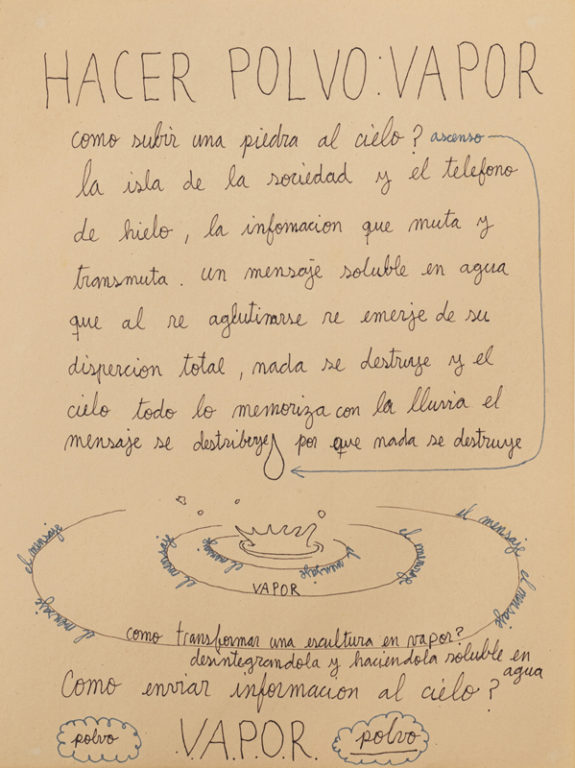 HACER POLVO:VAPOR
como subir una piedra al cielo? ascenso
la isla de la sociedad y el telefono
de hielo, la infomacion que muta y
transmuta. un mensaje soluble en agua
que al re aglutinarse re emerje de su
dispercion total, nada se destruye y el
cielo todo lo memoriza con la lluvia el
mensaje se destribuye por que nada se destruye
el mensaje
el mensaje
el mensaje
el mensaje
el mensaje
el mensaje
el mensaje
el mensaje
VAPOR
como transformar una escultura en vapor?
desintegrandola y haciendola soluble en
agua
Como enviar informacion al cielo?
polvo
.V.A.P.O.R.
polvo